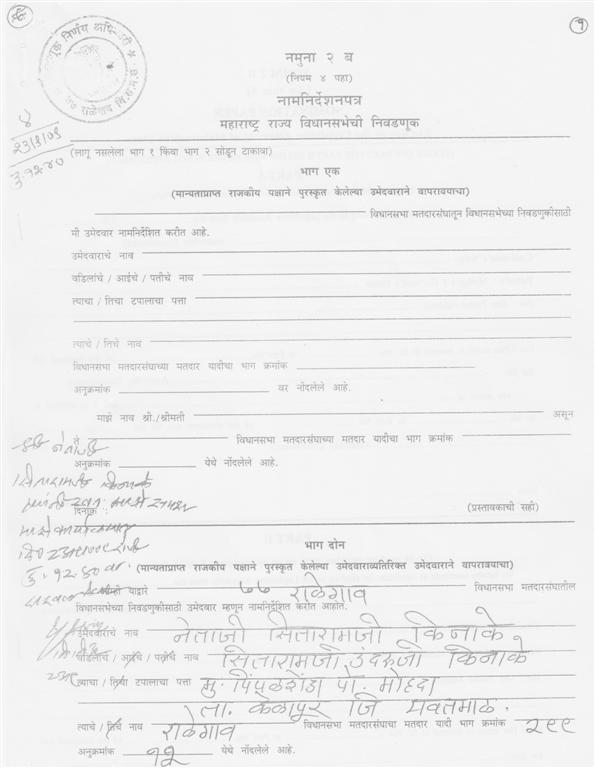 १
नमुना २ ब
(नियम ४ पहा)
नामनिर्देशनपत्र
महाराष्ट्र राज्य विधानसभेची निवडणूक
(लागू नसलेला भाग १ किंवा भाग २ सोडून टाकावा)
भाग एक
(मान्यताप्राप्त राजकीय पक्षाने पुरस्कृत केलेल्या उमेदवाराने वापरावयाचा)
विधानसभा मतदारसंघातून विधानसभेच्या निवडणुकीसाठी
मी उमेदवार नामनिर्देशित करीत आहे.
उमेदवाराचे नाव
वडिलांचे / आईचे / पतीचे नाव
त्याचा / तिचा टपालाचा पत्ता
त्याचे / तिचे नाव
विधानसभा मतदारसंघाच्या मतदार यादीचा भाग क्रमांक
अनुक्रमांक वर नोंदलेले आहे.
माझे नाव श्री./श्रीमती असून
ते विधानसभा मतदारसंघाच्या मतदार यादीचा भाग क्रमांक
अनुक्रमांक येथे नोंदलेले आहे.
दिनांक :
(प्रस्तावकाची सही)
भाग दोन
(मान्यताप्राप्त राजकीय पक्षाने पुरस्कृत केलेल्या उमेदवाराव्यतिरिक्त उमेदवाराने वापरावयाचा)
आम्ही याद्वारे ७७ राळेगाव विधानसभा मतदारसंघातील
विधानसभेच्या निवडणुकीसाठी उमेदवार म्हणून नामनिर्देशित करीत आहोत.
उमेदवाराचे नाव नेताजी सितारामजी किनाके
वडिलांचे / आईचे / पतीचे नाव सितारामजी उंदरुजी किनाके
त्याचा / तिचा टपालाचा पत्ता मु. पिंपळशेंडा पो. मोहदा
ता. केळापूर जि यवतमाळ.
त्याचे / तिचे नाव राळेगाव विधानसभा मतदारसंघाचा मतदार यादी भाग क्रमांक २९९
अनुक्रमांक १२ येथे नोंदलेले आहे.